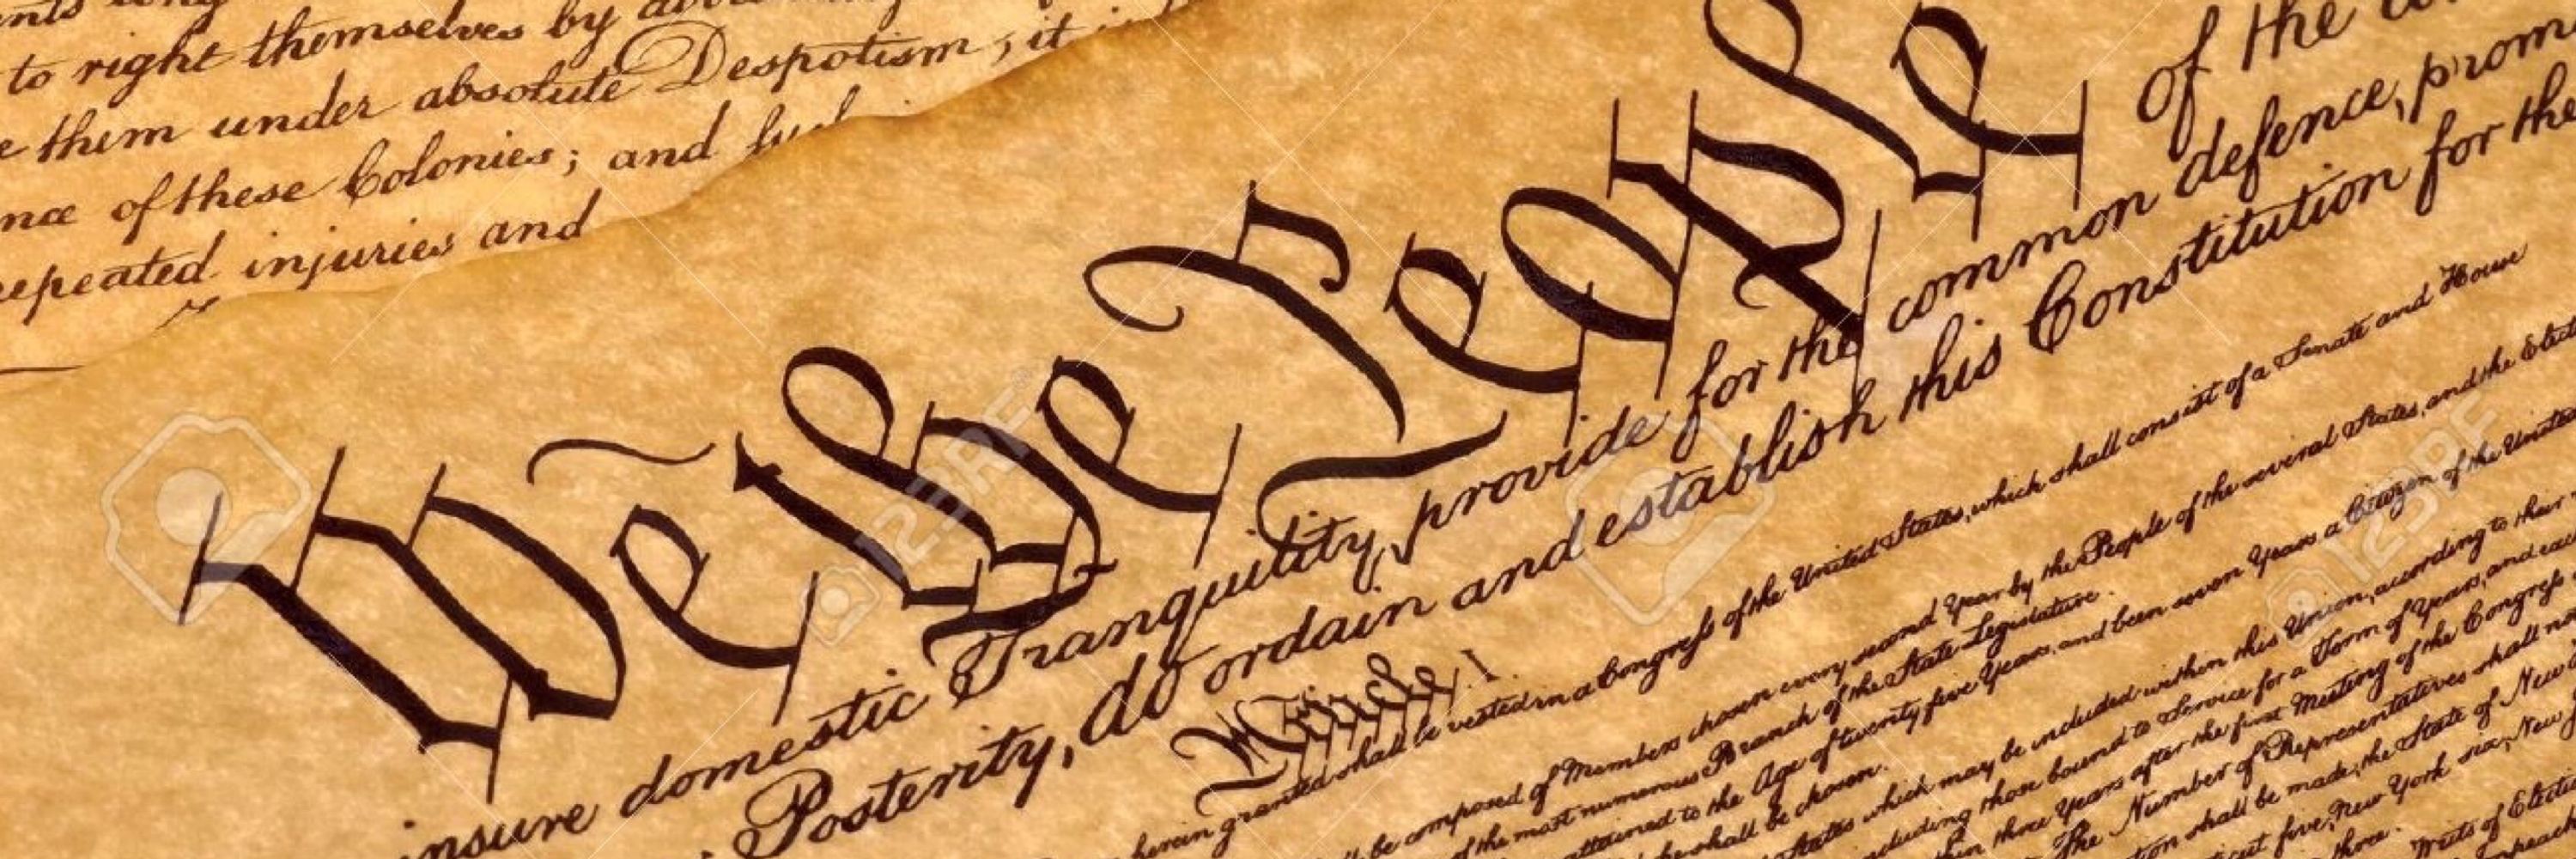 to right themselves by
them under absolute Despotism, it
of these Colonies; and
repeated injuries and
We the People of the
insure domestic Tranquility, provide for the common defence, prom
Posterity, do ordain and establish this Constitution for the
Article. I.
herein granted shall be vested in a Congress of the United States, which shall consist of a Senate and House
be composed of Members chosen every second Year by the People of the several States, and the Elect
of the most numerous Branch of the State Legislature.
attained to the Age of twenty five Years, and been seven Years a Citizen of the United
he shall be chosen.
States which may be included within this Union, according to their
including those bound to Service for a Term of Years, and
three Years after the first Meeting of the Congress
The Number of Representatives shall not
shall be made, the State of New
five, New York six, New
three.
Writs of Electi
123RF
123RF